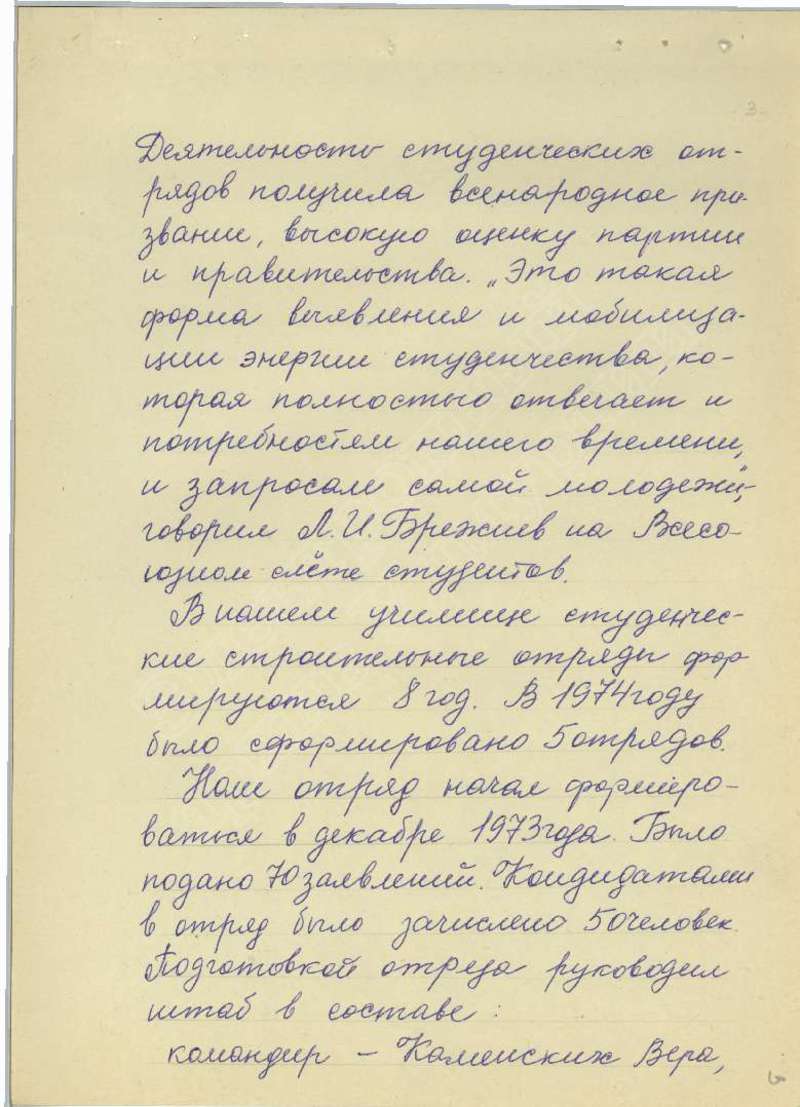 3
Деятельность студенческих от-
рядов получила всенародное при-
звание, высокую оценку партии
и правительства. „Это такая
форма выявления и мобилиза-
ции энергии студенчества, ко-
торая полностью отвечает и
потребностям нашего времени,
и запросам самой молодежи",-
говорил Л.И. Брежнев на Всесо-
юзном слёте студентов.
В нашем училище студенчес-
кие строительные отряды фор-
мируются 8 год. В 1974 году
было сформировано 5 отрядов.
Наш отряд начал формиро-
ваться в декабре 1973 года. Было
подано 70 заявлений. Кандидатами
в отряд было зачислено 50 человек.
Подготовкой отряда руководил
штаб в составе:
командир – Каменских Вера,